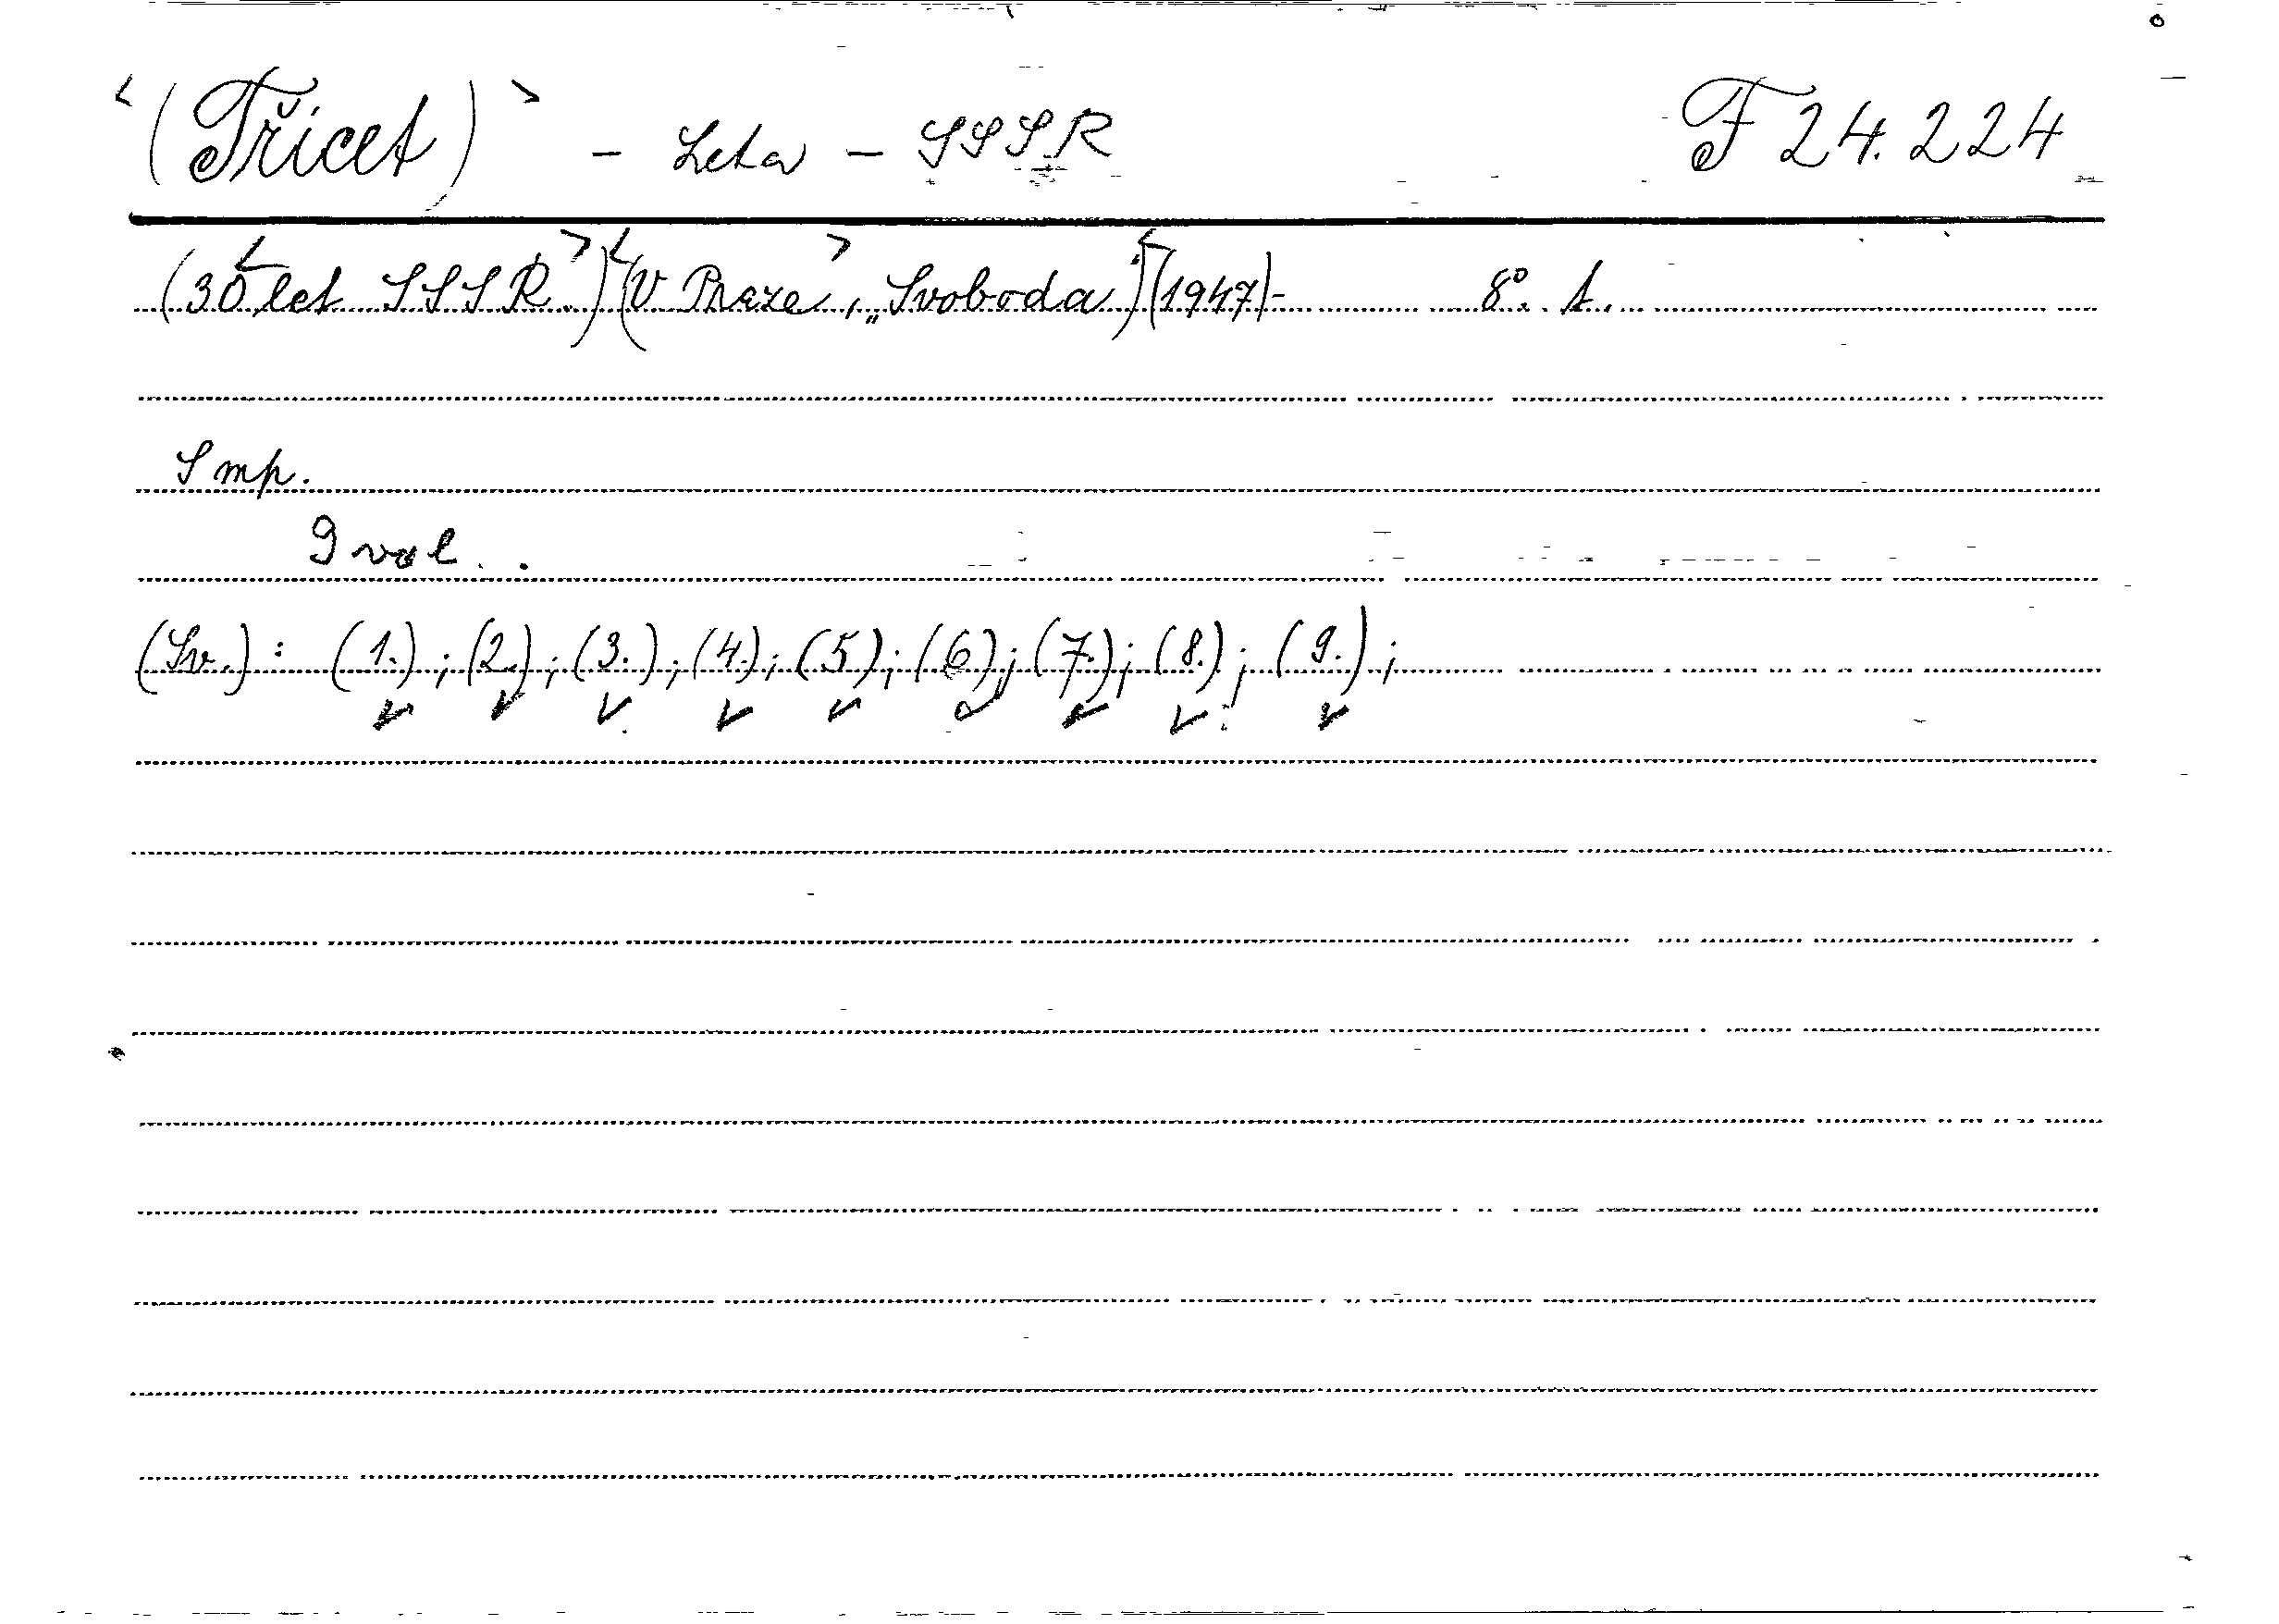 <(Třicet)> - Leta - SSSR F 24.224
(30 <let SSSR.>)<(V Praze>, „Svoboda“)<(1947)- 8°. t.
Smp.
9 vol..
(Sv.): (1.); (2.); (3.); (4.); (5); (6); (7.); (8.); (9.);
v v v v v v v v v